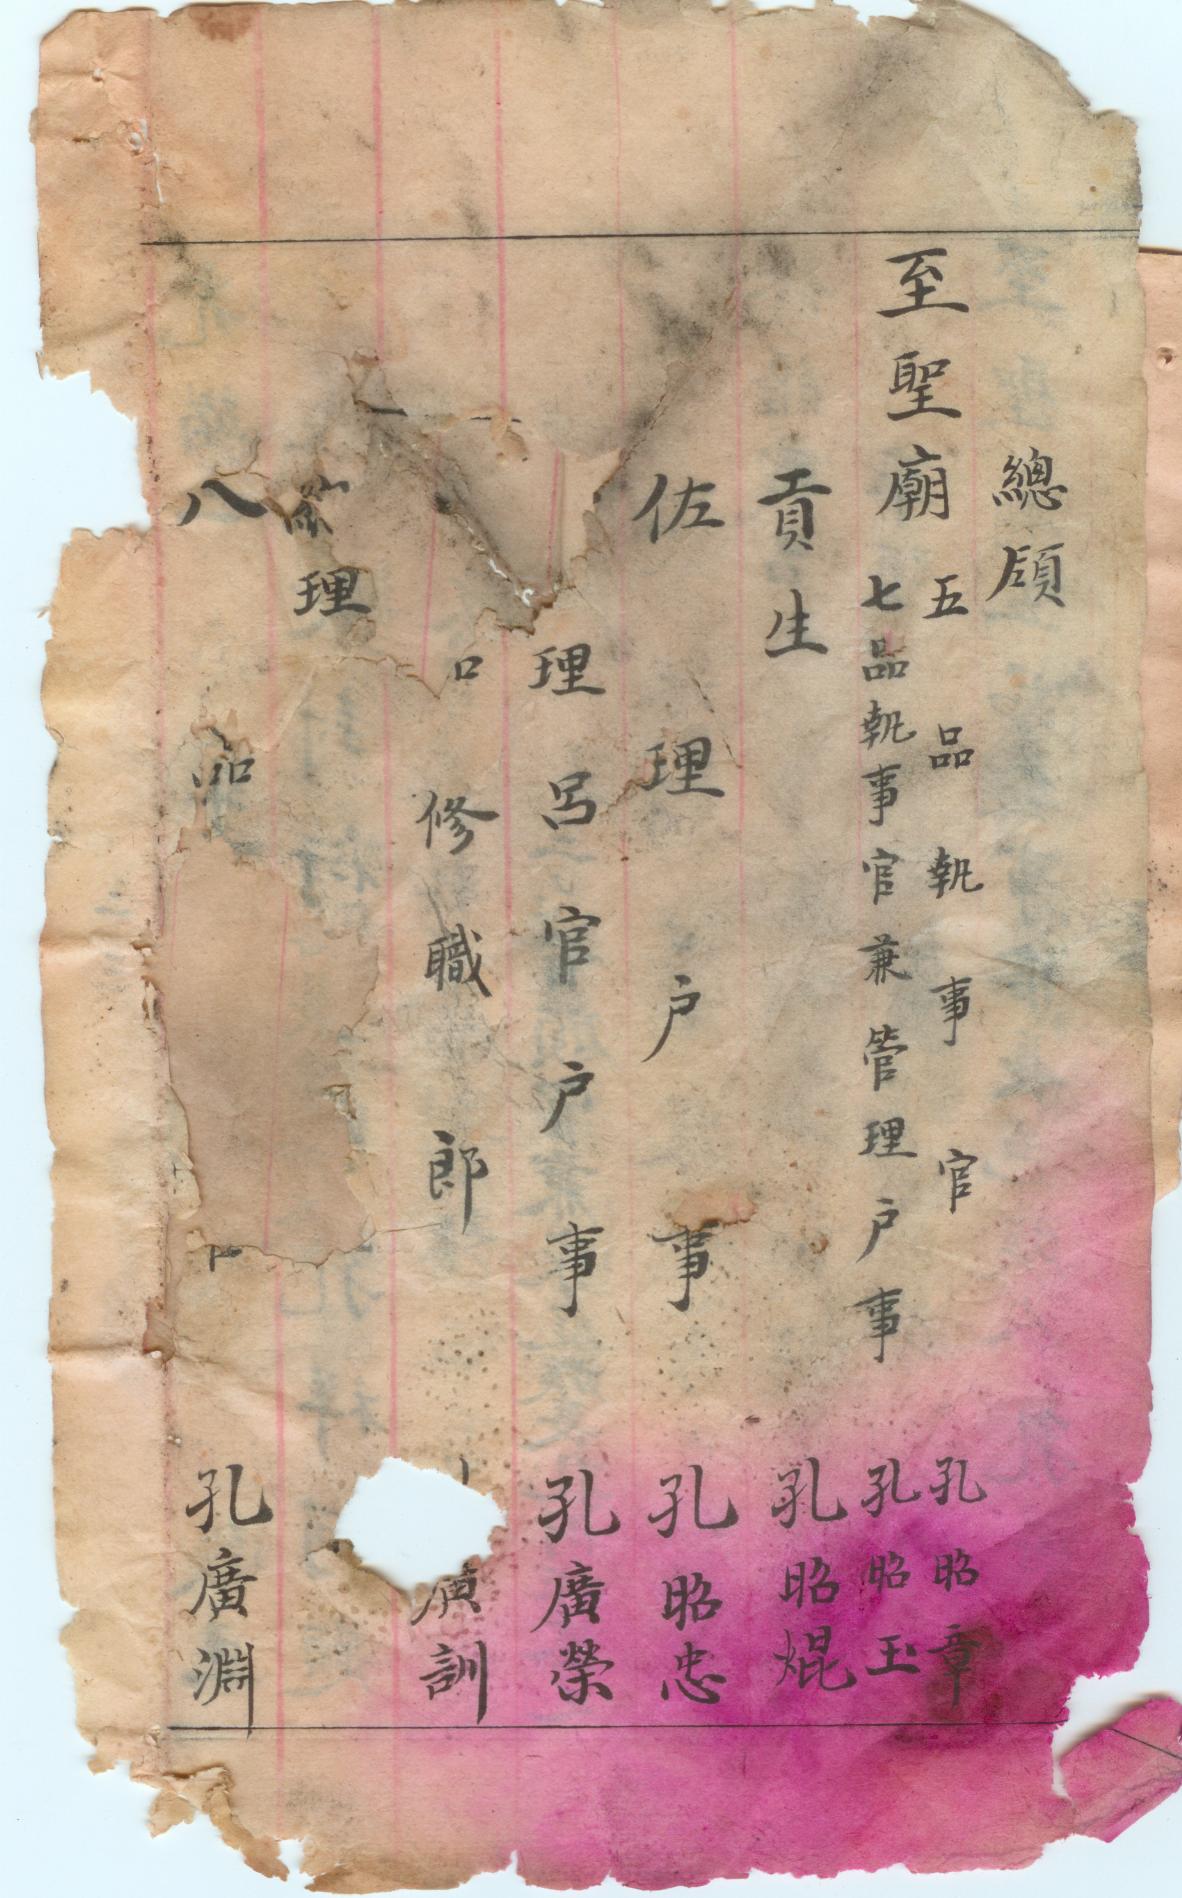 總領
至聖廟
五品執事官 孔昭章
七品執事官兼管理戶事 孔昭玉
貢生 孔昭焜
佐理戶事 孔昭忠
理呂官戶事 孔廣榮
修職郎 廣訓
理
八品 孔廣淵